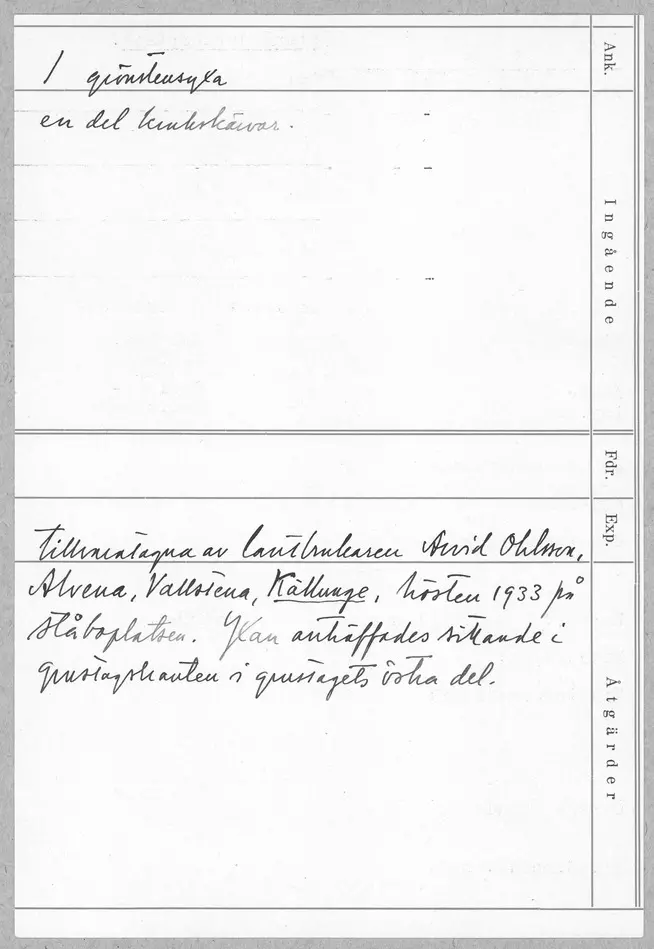 1 grönstensyxa
en del krukskärvor.
tillvaratagna av lantbrukaren Arvid Ohlsson,
Alvena, Vallstena, Källunge, hösten 1933 på
ståboplatsen. Yxan anträffades sittande i
grustagskanten i grustagets östra del.
Ank.
Ingående
Fdr.
Exp.
Åtgärder